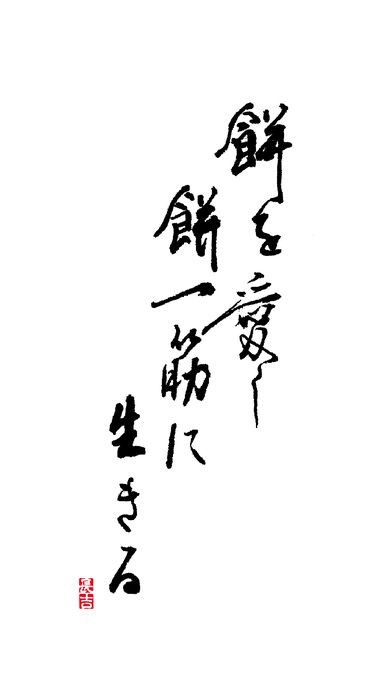 餅を愛し
餅一筋に
生きる